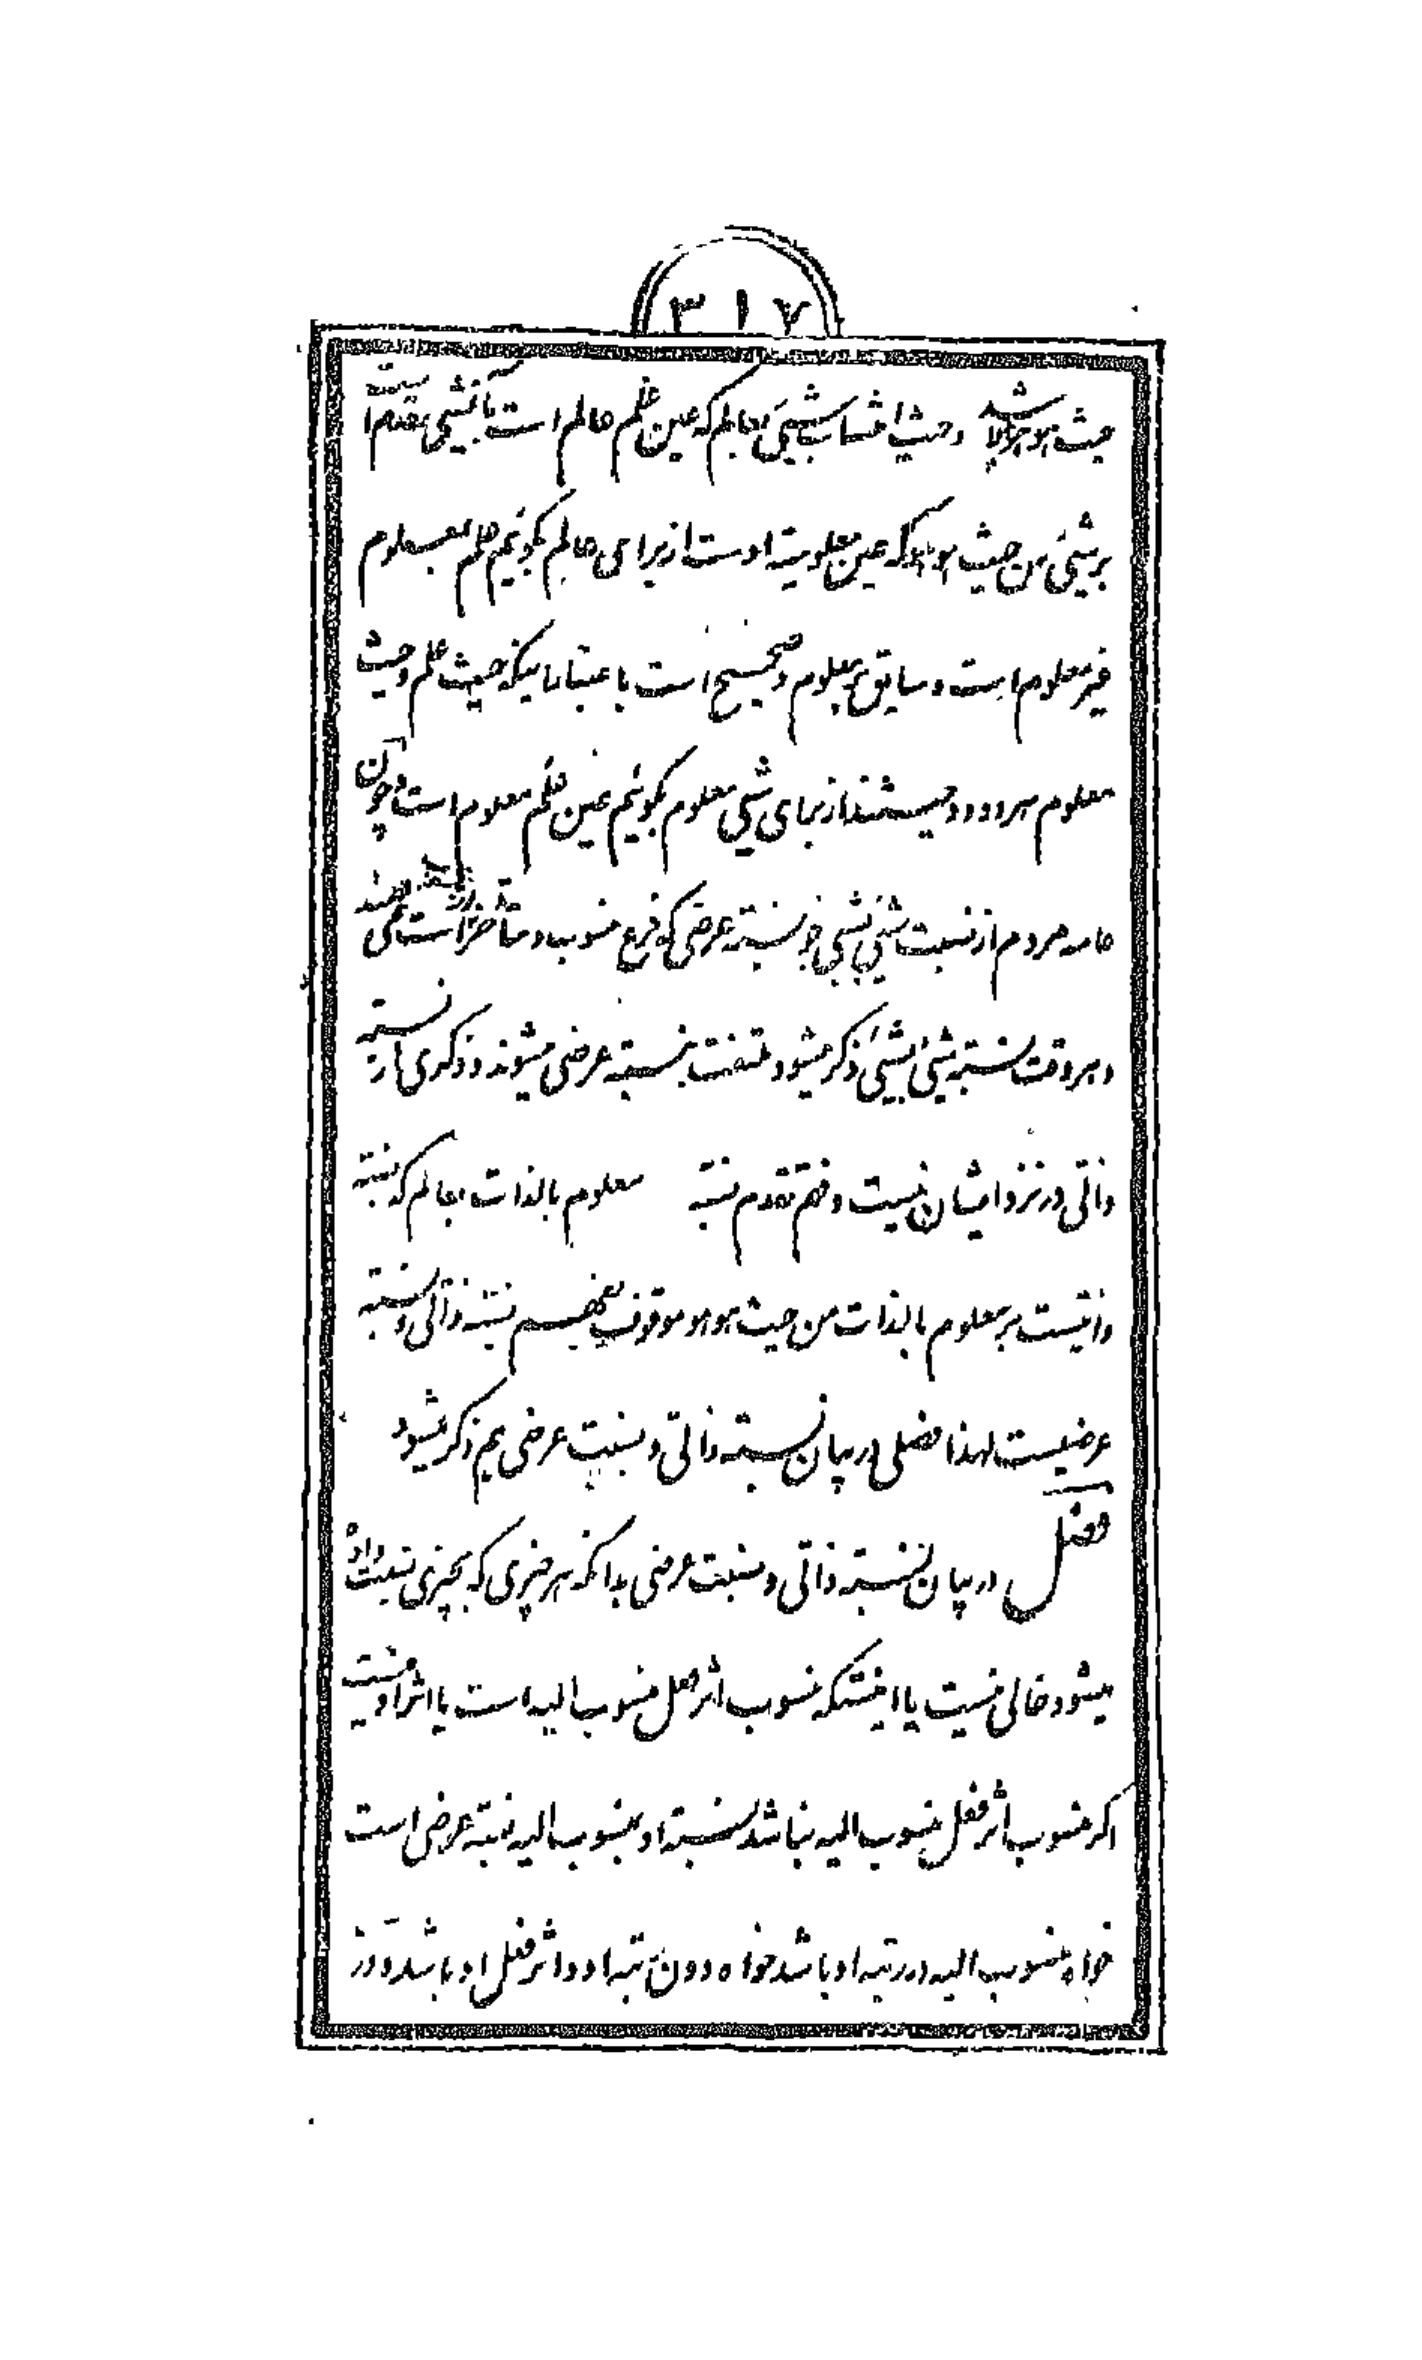 ۳۱۷
حیث هو هو باشد و حیث انتساب شیئی بعالم که عین علم عالم است بآن شیئی مقدم است
بر شیئی من حیث هو هو که عین معلومیته اوست از برای عالم بگوئیم علم بمعلوم
غیر معلوم است و سابق بر معلوم و صحیح است باعتبار اینکه حیث علم و حیث
معلوم هر دو دو حیثند از برای شیئی معلوم بگوئیم عین علم معلوم است و چون
عامه مردم از نسبت شیئی بشیئی جز نسبته عرضی که فرع منسوب و متأخر از است نمی فهمند
و هر وقت نسبته شیئی بشیئی ذکر میشود ملتفت بنسبته عرضی میشوند و ذکری از نسبته
ذاتی در نزد ایشان نیست و فهم تقدم نسبته معلوم بالذات بعالم که نسبته
ذاتیست بر معلوم بالذات من حیث هو هو موقوف بفهم نسبته ذاتی و نسبته
عرضیست لهذا فصلی در بیان نسبته ذاتی و نسبت عرضی هم ذکر میشود
فصل در بیان نسبته ذاتی و نسبت عرضی بدانکه هر چیزی که بچیزی نسبت داده
میشود خالی نیست یا اینستکه منسوب اثر فعل منسوب الیه است یا اثر او نیست
اگر منسوب اثر فعل منسوب الیه نباشد نسبته او بمنسوب الیه نسبته عرضی است
خواه منسوب الیه در رتبه او باشد خواه دون رتبه او و اثر فعل او باشد و در